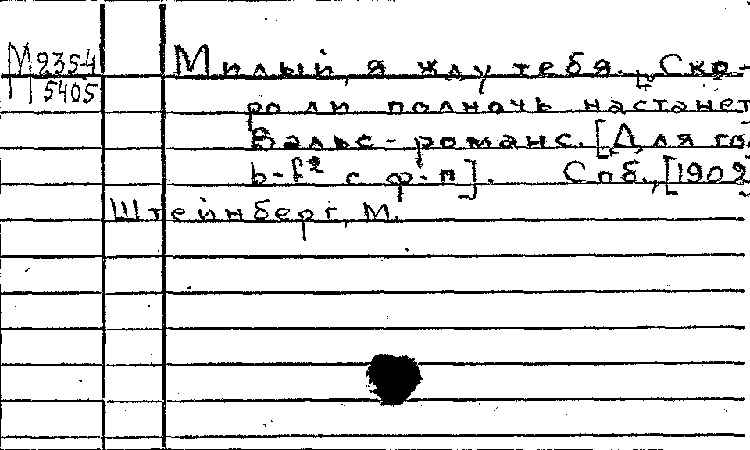 М 235-4 Милый, я жду тебя... [Ско-
М 5405 ро ли полночь настанет
Вальс-романс. [Для го.
b-f² с ф-п]. Спб., [1902
Штейнберг, М.